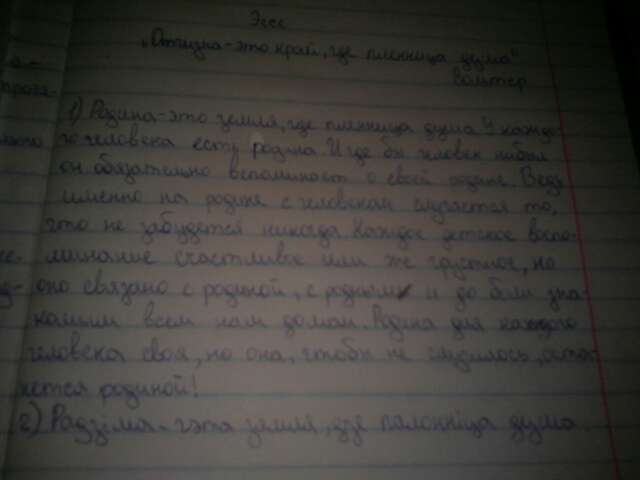 Эссе
„Отчизна-это край, где пленница душа"
Вольтер
1) Родина-это земля, где пленница душа. У каждо-
го человека есть родина. И где бы человек нибыл
он обязательно вспоминает о своей родине. Ведь
именно на родине с человекам случается то,
что не забудется никогда. Каждое детское воспо-
минание счастливое или же грустное, но
оно связано с родиной, с родным и до боли зна-
комым всем нам домом. Родина для каждого
человека своя, но она, чтобы не случилось, оста-
нется родиной!
2) Радзіма-гэта зямля, дзе палонніца душа.